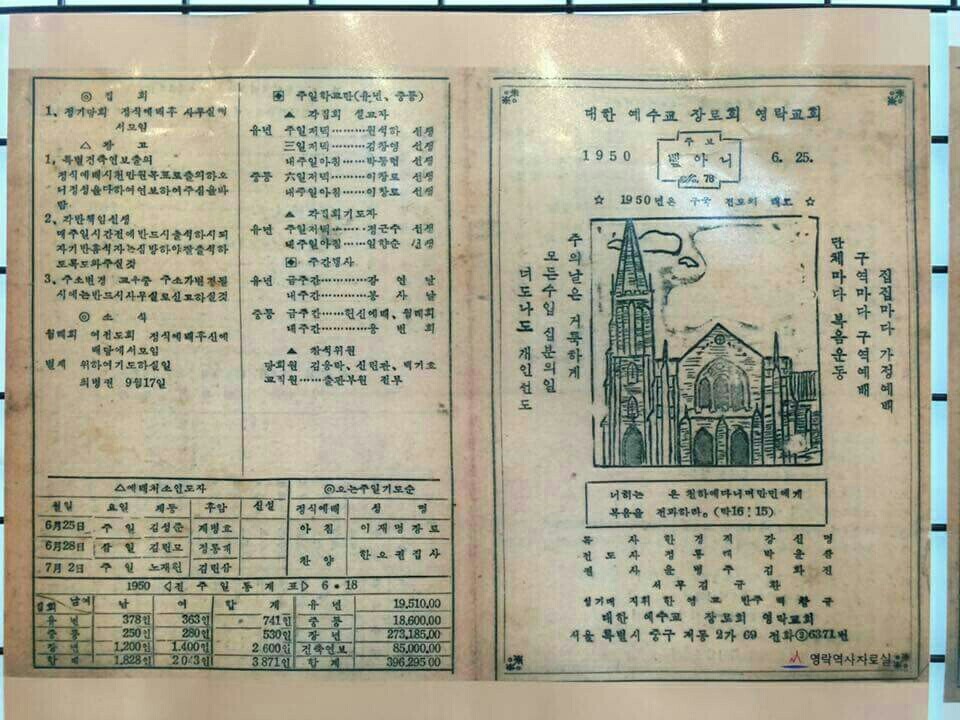 ◎ 집 회
1、정기당회 정식예배후 사무실에
서모임
△ 광 고
1、특별건축연보출의
정식예배시천만원목표로출의하오
니정성을다하여연보하여주심을바
람
2、각반책임선생
매주일시간전에반드시출석하시되
자기반휴석자는심방하야쫄출석하
도록도와주실것
3、주소변경 교우중 주소가변경될
시에는반드시사무실로신고하실것
◎ 소 식
월례회 여전도회 정식예배후신에
배당에서모임
별세 위하여기도하실일
최병전 9월17일
주일학교란(유년、중등)
▲ 각집회 설교자
유년 주일저녁………원석하 선생
三일저녁………김창영 선생
내주일아침……박동혁 선생
중등 六일저녁………이창로 선생
내주일아침……이창로 선생
▲ 각집회기도자
유년 주일저녁………정근수 선생
내주일아침……임향순 선생
주간명사
유년 금주간…………강 연 날
내주간…………봉 사 날
중등 금주간………헌신예배、월례회
내주간…………웅 변 회
▲ 참석위원
당회원 김응락、신헌관、백기호
교직원……출판부원 전부
△예배처소인도자
월일 요일 제동 후암 신설
6月25日 주일 김성준 계병호
6月28日 삼일 김현모 정통재
7月 2日 주일 노재원 김헌삼
◎오는주일기도순
정식예배 성 명
아침 이재명장로
찬양 한오전집사
1950 ◁전 주일 통계 표▷ 6・18
집회 남여 남 여 합 계
유 년 378인 363인 741인
중 등 250인 280인 530인
장 년 1,200인 1.400인 2.600인
합 계 1,828인 2043인 3.871인
유 년 19,510.00
중 등 18,600.00
장 년 273,185.00
건축연보 85,000.00
합 계 396,295.00
대한 예수교 장로회 영락교회
1950 6.25.
주보
뻳아니
No. 78
☆ 1950년은 구국 전도의 해로 ☆
집집마다 가정예배
구역마다 구역예배
단체마다 복음운동
주의날은 거룩하게
모든수입 십분의일
너도나도 개인전도
너희는 온 천하에다니며만민에게
복음을 전파하라。(막16:15)
목 사 한 경 직 강 신 명
전 도 사 정 통 재 박 윤 삼
전 사 윤 병 주 김 화 진
서 무 김 규 환
성가대 지휘 한 영 교 반주 백 황 균
대한 예수교 장로회 영락교회
서울 특별시 중구 저동 2가 69 전화②6371번
영락역사자료실